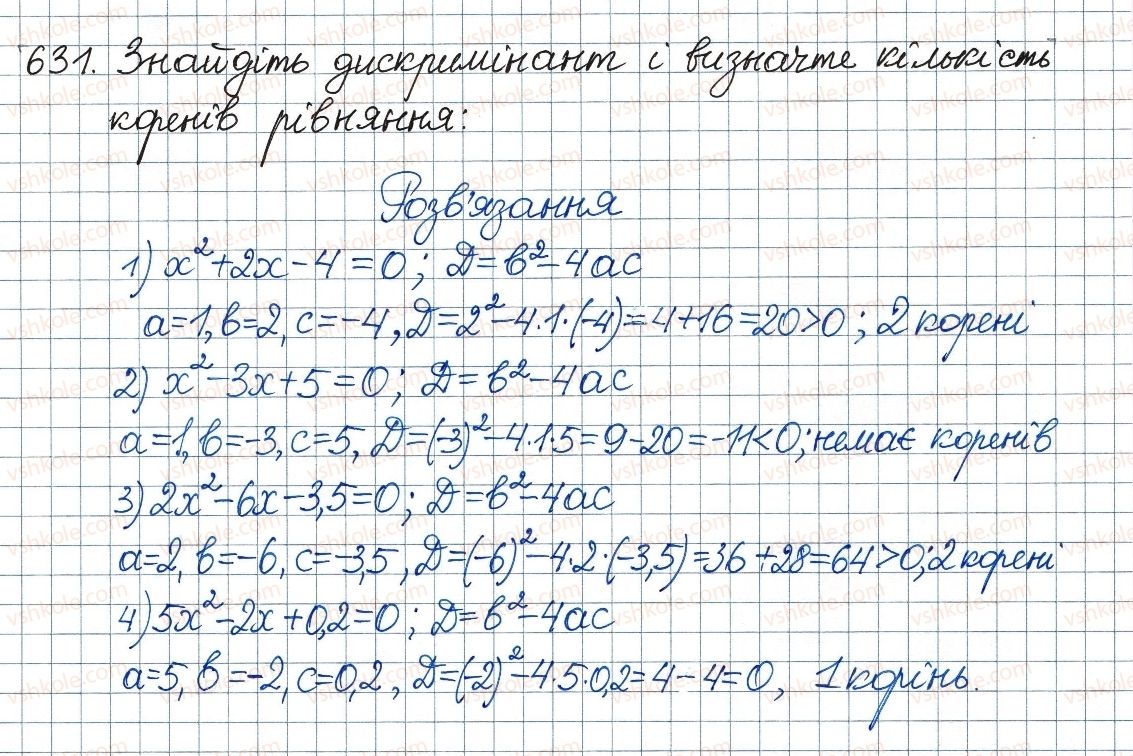 631. Знайдіть дискримінант і визначте кількість
коренів рівняння:
Розв'язання
1) x²+2x-4=0; Д=в²-4ac
a=1, в=2, c=-4, Д=2²-4·1·(-4)=4+16=20>0; 2 корені
2) x²-3x+5=0; Д=в²-4ac
a=1, в=-3, c=5, Д=(-3)²-4·1·5=9-20=-11<0; немає коренів
3) 2x²-6x-3,5=0; Д=в²-4ac
a=2, в=-6, c=-3,5, Д=(-6)²-4·2·(-3,5)=36+28=64>0; 2 корені
4) 5x²-2x+0,2=0; Д=в²-4ac
a=5, в=-2, c=0,2, Д=(-2)²-4·5·0,2=4-4=0, 1 корінь.